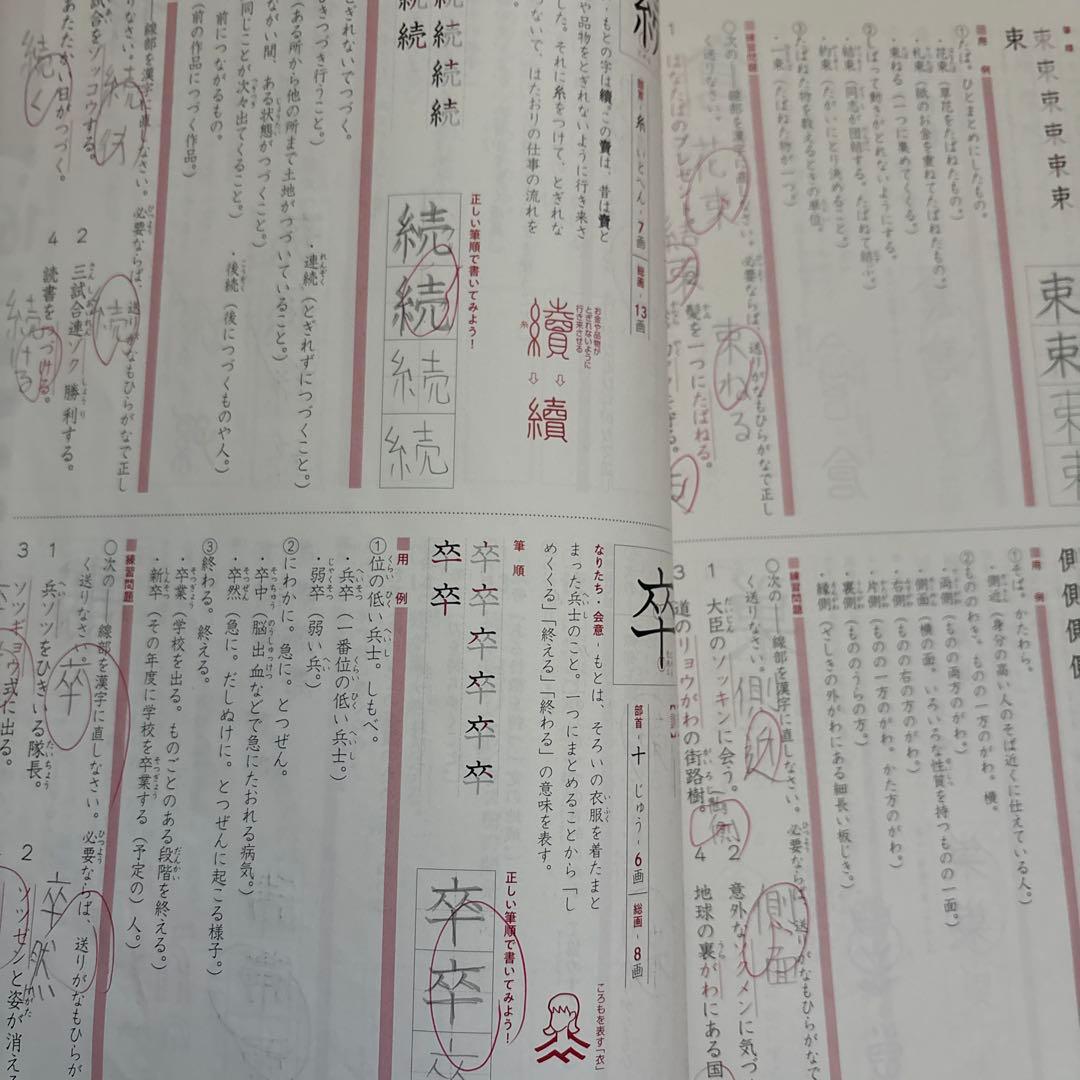 筆順
束
束 束 束 束 束
用例
①たば。ひとまとめにしたもの。
・花束（草花をたばねたもの。）
・札束（紙のお金を重ねてたばねたもの。）
・束ねる（一つに集めてくくる。）
②しばって動きがとれないようにする。
・結束（同志が団結する。たばねて結ぶ。）
・約束（たがいにとり決めること。）
③たばねた物を数えるときの単位。
・一束（たばねた物が一つ。）
練習問題
く送りなさい。
1 はなたばのプレゼント
髪を一つにたばねる。
花束
束ねる
束
束
束
続
部首・糸 いとへん・7画 総画・13画
続 続 続
もとの字は續。この賣は、昔は賣と
や品物をとぎれないように行き来さ
した。それに糸をつけて、とぎれな
つないで、はたおりの仕事の流れを
お金や品物が
とぎれないように
行き来させる
糸
續⇨⇨續
正しい筆順で書いてみよう！
続
続
続
続
とぎれないでつづく。
・連続（とぎれずにつづくこと。）
きつづき行うこと。）
（ある所から他の所まで土地がつづいていること。）
ながい間、ある状態がつづくこと。）
・後続（後につづくものや人。）
同じことが次々出てくること。）
前につながるもの。
（前の作品につづく作品。）
線部を漢字に直しなさい。必要ならば、送りがなもひらがなで正し
りなさい。
試合をゾッコウする。
2 三試合連ゾク勝利する。
あたたかい日がつづく。
4 読書をつづける。
続く
続
側 側 側 側
用例
①そば。かたわら。
・側近（身分の高い人のそば近くに仕えている人。）
②もののわき、ものの一方のがわ。横。
・両側（ものの両方のがわ。）
・側面（横の面。いろいろな性質を持つものの一面。）
・右側（ものの右の方のがわ。）
・片側（ものの一方のがわ。かた方のがわ。）
・裏側（もののうらの方。）
・縁側（ざしきの外がわにある細長い板じき。）
練習問題
○次の——線部を漢字に直しなさい。必要ならば、送りがなもひらがなで
く送りなさい。
1 大臣のソッキンに会う。
2 意外なソクメンに気づ
3 道のリョウがわの街路樹。
4 地球の裏がわにある国
側面
卒
部首・十 じゅう・6画 総画・8画
なりたち・会意・もとは、そろいの衣服を着たまと
まった兵士のこと。一つにまとめることから「し
めくくる」「終える」「終わる」の意味を表す。
ころもを表す「衣」
筆順
卒 卒 卒 卒 卒 卒
卒 卒
正しい筆順で書いてみよう！
卒
卒
卒
用例
①位の低い兵士。しもべ。
・兵卒（一番位の低い兵士。）
・弱卒（弱い兵。）
②にわかに。急に。とつぜん。
・卒中（脳出血などで急にたおれる病気。）
・卒然（急に。だしぬけに。とつぜんに起こる様子。）
③終わる。終える。
・卒業（学校を出る。ものごとのある段階を終える。）
・新卒（その年度に学校を卒業する（予定の）人。）
練習問題
○次の——線部を漢字に直しなさい。必要ならば、送りがなもひらが
く送りなさい。
1 兵ソツをひきいる隊長。
2 ソツゼンと姿が消え
3 ソツギョウ式に出る。
卒
卒然